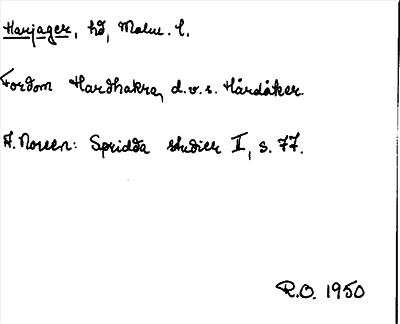 Harjager, hd, Malm. l.
Fordom Hardhakra, d.v.s. Hårdåker.
A. Noreen: Spridda studier II, s. 77.
R.O. 1950